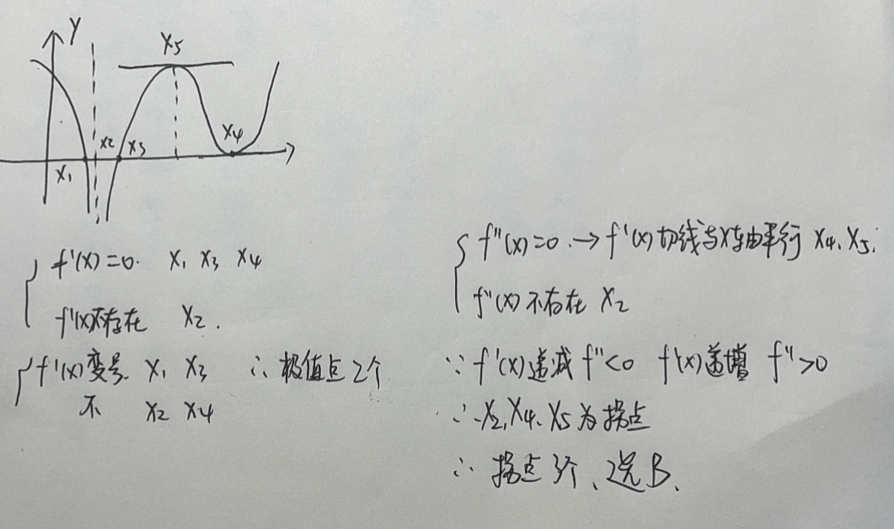 Y
x5
x4
x2
x3
x1
f'(x)=0. x1 x3 x4
f'(x)不存在 x2.
f'(x)变号 x1 x3 ∴极值点2个
不 x2 x4
f''(x)=0.→f'(x)切线与x轴平行 x4、x5.
f''(x)不存在 x2
∵f'(x)递减 f''<0 f'(x)递增 f''>0
∴x2,x4、x5为拐点
∴拐点3个、选B、